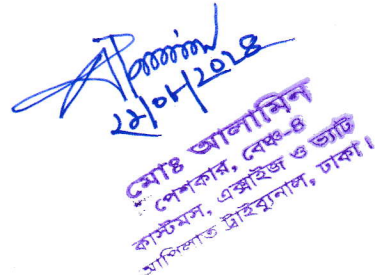 ২২/০৮/২০২৪
মোঃ আলামিন
পেশকার, বেঞ্চ-৪
কাস্টমস, এক্সাইজ ও ভ্যাট
আপিলাত ট্রাইব্যুনাল, ঢাকা।